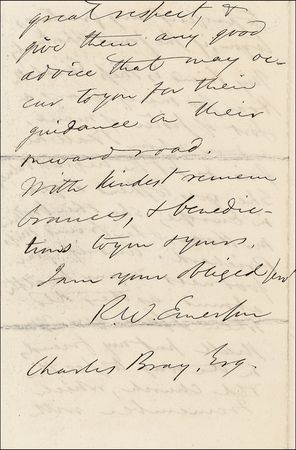 great respect, &
give them any good
advice that may oc-
cur to you for their
guidance on their
onward road.
With kindest remem
brances, & benedic-
tions to you & yours,
I am your obliged
R. W. Emerson
Charles Bray, Esq.